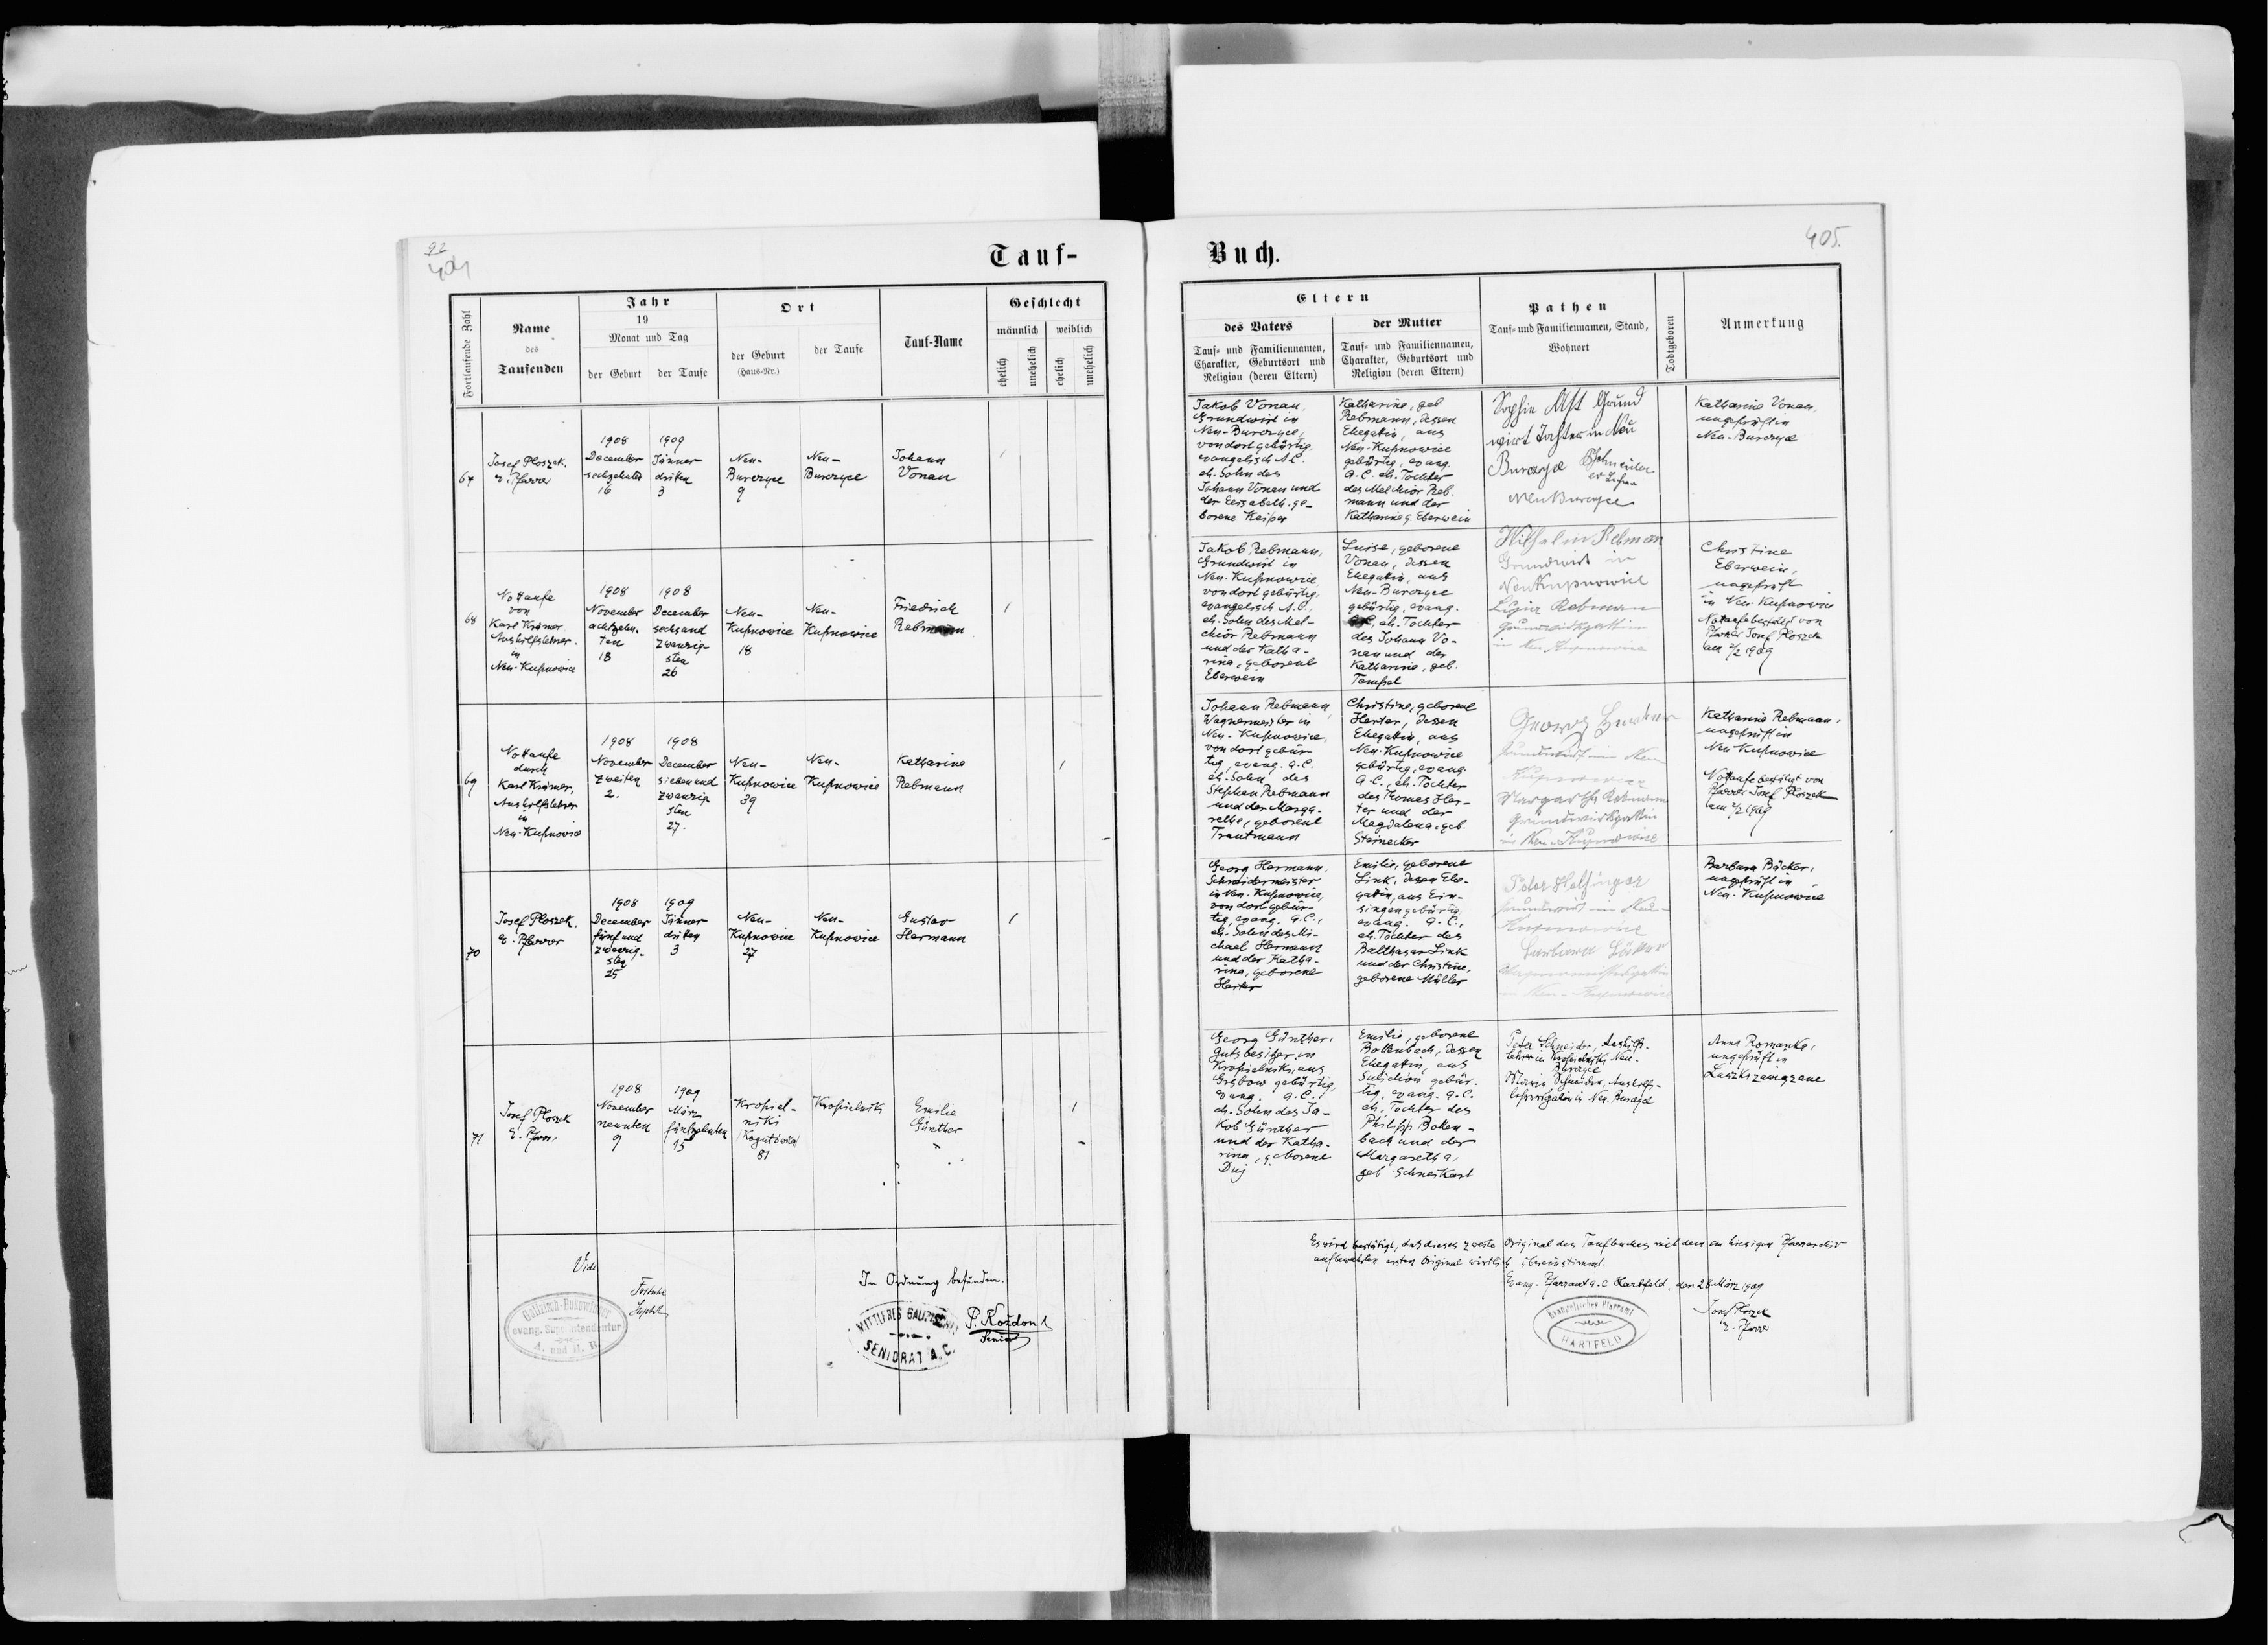 92
404
Tauf-
Fortlaufende Zahl
Name
des
Taufenden
Jahr
19
Monat und Tag
der Geburt
der Taufe
Ort
der Geburt
(Haus-Nr.)
der Taufe
Tauf-Name
Geschlecht
männlich
weiblich
ehelich
unehelich
ehelich
unehelich
67
Josef Ploszek,
e. Pfarrer
1908
December
sechzehnten
16
1909
Jänner
dritten
3
Neu-
Burczyce
9
Neu-
Burczyce
Johann
Vonau
68
Nottaufe
von
Karl Krämer
Aushilfslehrer
in
Neu-Kupnowice
1908
November
achtzehn-
ten
18
1908
December
sechsund
zwanzig-
sten
26
Neu-
Kupnowice
18
Neu-
Kupnowice
Friedrich
Rebmann
69
Nottaufe
durch
Karl Krämer,
Aushilfslehrer
in
Neu-Kupnowice
1908
November
zweiten
2.
1908
December
siebenund
zwanzig-
sten
27.
Neu-
Kupnowice
39
Neu-
Kupnowice
Katharina
Rebmann
70
Josef Ploszek,
e. Pfarrer
1908
December
fünfund
zwanzig-
sten
25
1909
Jänner
dritten
3
Neu-
Kupnowice
27
Neu-
Kupnowice
Gustav
Hermann
71
Josef Ploszek
e. Pfarrer
1908
November
neunten
9
1909
März
fünfzehnten
15
Kropiel-
niki
81
Kropielniki
Emilie
Günther
Vidi
Galizisch-Bukowinaer
evang. Superintendentur
A. und H. B.
In Ordnung befunden.
MITTLERES GALIZISCHES
SENIORAT A.C.
P. Kozdon
Senior
405.
Buch.
Eltern
des Vaters
Tauf- und Familiennamen,
Charakter, Geburtsort und
Religion (deren Eltern)
der Mutter
Tauf- und Familiennamen,
Charakter, Geburtsort und
Religion (deren Eltern)
Pathen
Tauf- und Familiennamen, Stand,
Wohnort
Todtgeboren
Anmerkung
Jakob Vonau,
Grundwirt in
Neu-Burczyce,
von dort gebürtig,
evangelisch A.C.
eh. Sohn des
Johann Vonau und
der Elisabeth, ge-
borene Keiper
Katharina, geb
Rebmann, dessen
Ehegattin, aus
Neu-Kupnowice
gebürtig, evang.
A.C. eh. Tochter
des Melchior Reb-
mann und der
Katharina g. Eberwein
Sophie Ast Grund
wirt Tochter in Neu
Burczyce
Neu Burczyce
Katharina Vonau,
ungeprüft in
Neu-Burczyce
Jakob Rebmann,
Grundwirt in
Neu-Kupnowice,
von dort gebürtig,
evangelisch A.C.,
eh. Sohn des Mel-
chior Rebmann
und der Katha-
rina, geborene
Eberwein
Luise, geborene
Vonau, dessen
Ehegattin, aus
Neu-Burczyce
gebürtig, evang.
eh. Tochter
des Johann Vo-
nau und der
Katharina, geb.
Tempel
Wilhelm Rebman
Grundwirt in
Neu Kupnowice
Rebmann
Grundwirtsgattin
in Neu Kupnowice
Christine
Eberwein,
ungeprüft
in Neu-Kupnowice
Nottaufe bestätigt von
Pfarrer Josef Ploszek
am 2/2 1909
Johann Rebmann,
Wagnermeister in
Neu-Kupnowice,
von dort gebür-
tig, evang. A.C.
eh. Sohn des
Stephan Rebmann
und der Marga-
rethe, geborene
Trautmann
Christine, geborene
Herter, dessen
Ehegattin, aus
Neu-Kupnowice
gebürtig, evang.
A.C., eh. Tochter
des Thomas Her-
ter und der
Magdalena, geb.
Steinecker
Georg
Grundwirt in Neu
Kupnowice
Margaretha Rebmann
Grundwirtsgattin
in Neu-Kupnowice
Katharina Rebmann,
ungeprüft in
Neu Kupnowice
Nottaufe bestätigt von
Pfarrer Josef Ploszek
am 2/2 1909
Georg Hermann,
Schneidermeister
in Neu-Kupnowice,
von dort gebür-
tig, evang. A.C.,
eh. Sohn des Mi-
chael Hermann
und der Katha-
rina, geborene
Herter
Emilie, geborene
Link, dessen Ehe-
gattin, aus Ein-
singen gebürtig,
evang. A.C.,
eh. Tochter des
Balthasar Link
und der Christine,
geborene Müller
Peter Helfinger
Grundwirt in Neu-
Kupnowice
Barbara Bäcker
in Neu-Kupnowice
Barbara Bäcker,
ungeprüft in
Neu-Kupnowice
Georg Günther,
Gutsbesitzer in
Kropielniki, aus
Grabow gebürtig,
evang. A.C.,
eh. Sohn des Ja-
kob Günther
und der Katha-
rina, geborene
Duj
Emilie, geborene
Bollenbach, dessen
Ehegattin, aus
gebür-
tig, evang. A.C.
eh. Tochter des
Philipp Bollen-
bach und der
Margaretha,
geb
Peter Schneider, Aushilfs-
lehrer in Neu-
Burczyce
Maria Schneider, Aushilfs-
lehrersgattin in Neu Burczyce
Anna Romanka,
ungeprüft in
Laszki zawiązane
Es wird bestätigt, daß dieses zweite Original des Taufbuches mit dem im hiesigen Pfarrarchiv
aufbewahrten ersten Original wörtlich übereinstimmt.
Evang. Pfarramt A.C. Hartfeld, den 28. März 1909
Evangelisches Pfarramt
HARTFELD
Josef Ploszek
e. Pfarrer